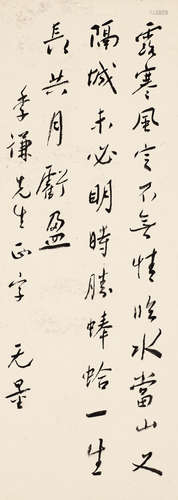 露寒風定不無情臨水當山又
隔城未必明時勝蚌蛤一生
長共月虧盈
季謙先生正字 无量